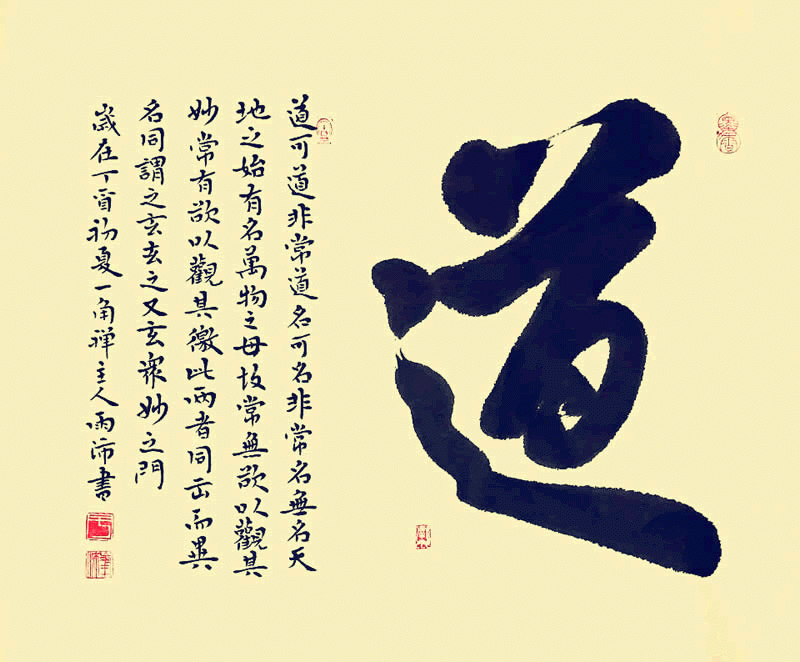 道
道可道非常道名可名非常名無名天
地之始有名萬物之母故常無欲以觀其
妙常有欲以觀其徼此兩者同出而異
名同謂之玄玄之又玄衆妙之門
歲在丁酉初夏一角禅主人雨沛書